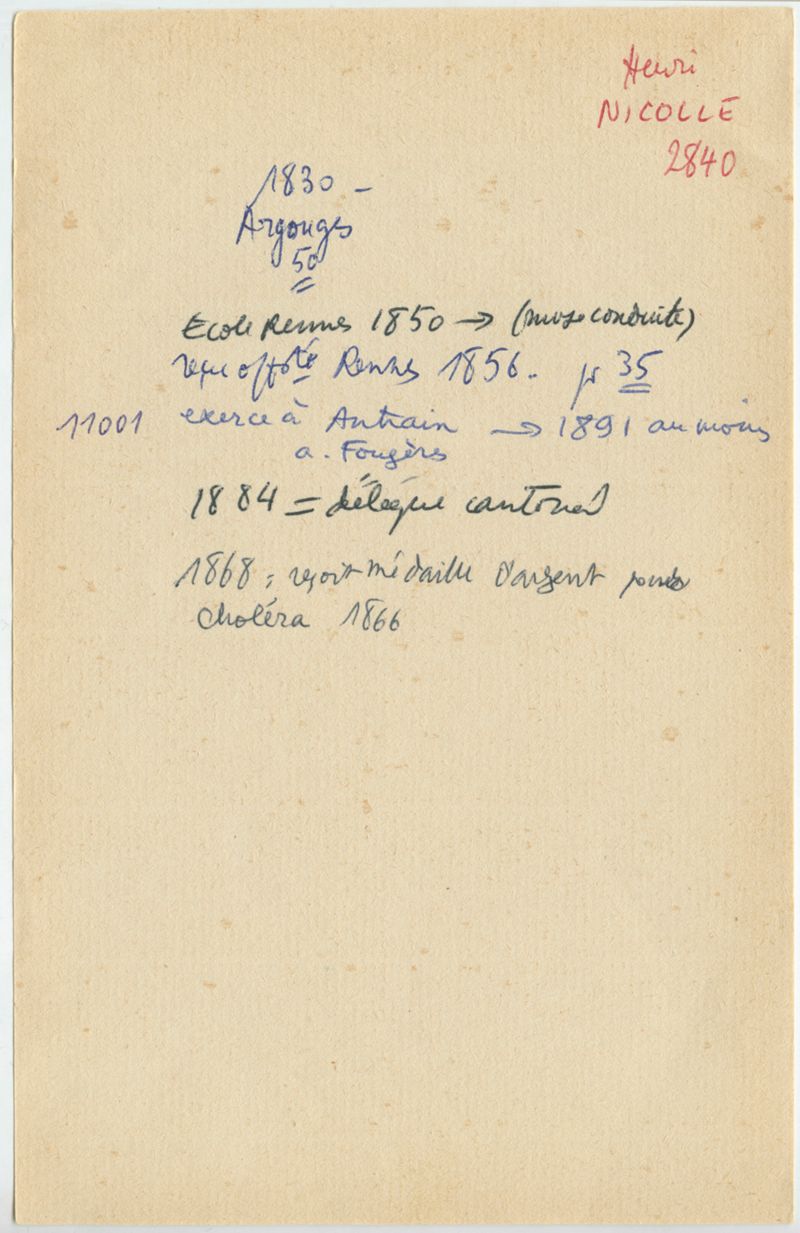 Henri
NICOLLE
2840
1830 -
Argouges
50
Ecole Rennes 1850 → (conduite)
reçu off té Rennes 1856. pr 35
11001 exerce à Antrain → 1891 au moins
a. Fougères
1884 = délégué cantonal
1868 = reçoit médaille d'argent pour
choléra 1866